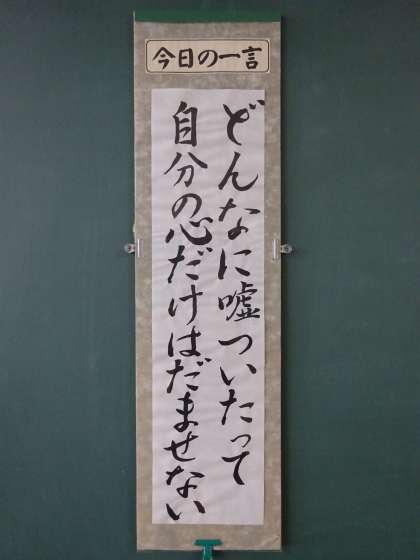 今日の一言
どんなに嘘ついたって
自分の心だけはだませない